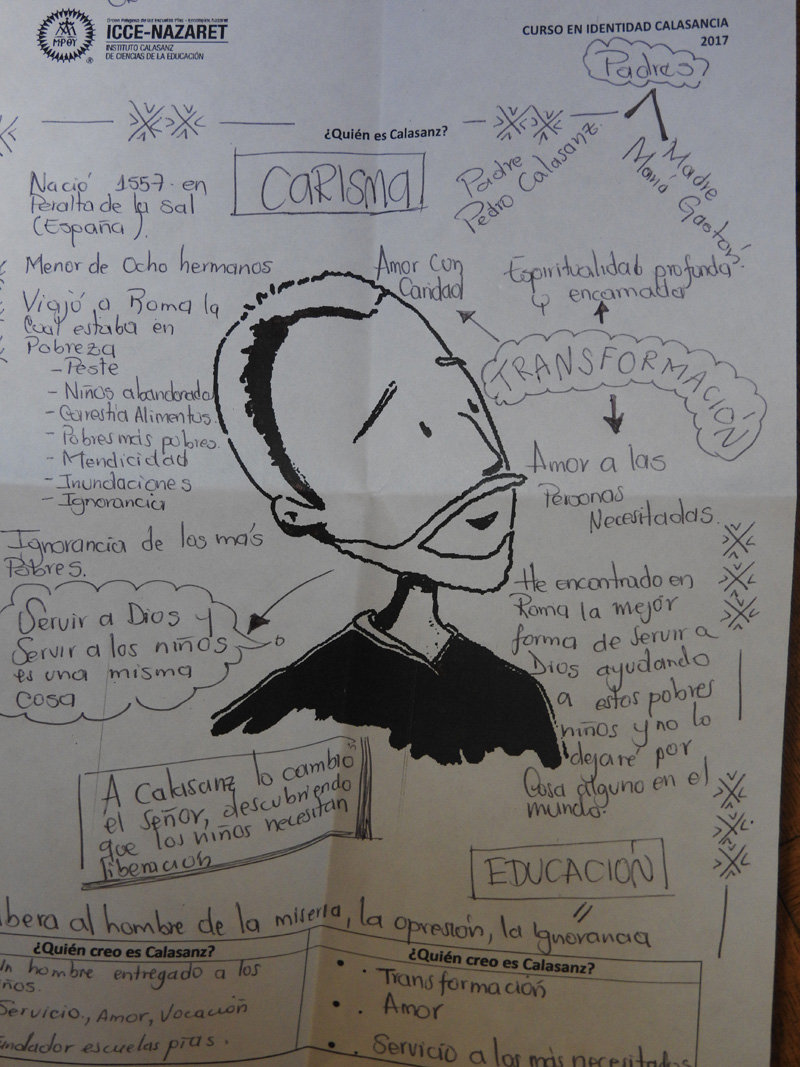 ICCE-NAZARET
INSTITUTO CALASANZ
DE CIENCIAS DE LA EDUCACIÓN
CURSO EN IDENTIDAD CALASANCIA
2017
Padres?
¿Quién es Calasanz?
CARISMA
Padre
Pedro Calasanz.
Madre
María Gastón.
Nació 1557. en
Peralta de la Sal
(España).
Menor de Ocho hermanos
Viajó a Roma la
Cual estaba en
Pobreza
- Peste
- Niños abandonado
- Carestia Alimentos.
- Pobres más pobres.
- Mendicidad
- Inundaciones
- Ignorancia
Ignorancia de los más
Pobres.
Servir a Dios y
Servir a los niños
es una misma
cosa
Amor con
Caridad
Espiritualidad profunda
y encarnada
TRANSFORMACIÓN
Amor a las
Personas
Necesitadas.
He encontrado en
Roma la mejor
forma de servir a
Dios ayudando
a estos pobres
niños y no lo
dejaré por
Cosa alguno en el
mundo.
A Calasanz lo cambió
el señor, descubriendo
que los niños necesitan
liberación
EDUCACIÓN
libera al hombre de la miseria, la opresión, la Ignorancia
¿Quién creo es Calasanz?
Un hombre entregado a los
niños.
Servicio, Amor, Vocación
Fundador escuelas pias.
¿Quién creo es Calasanz?
• Transformación
• Amor
• Servicio a los más necesitados